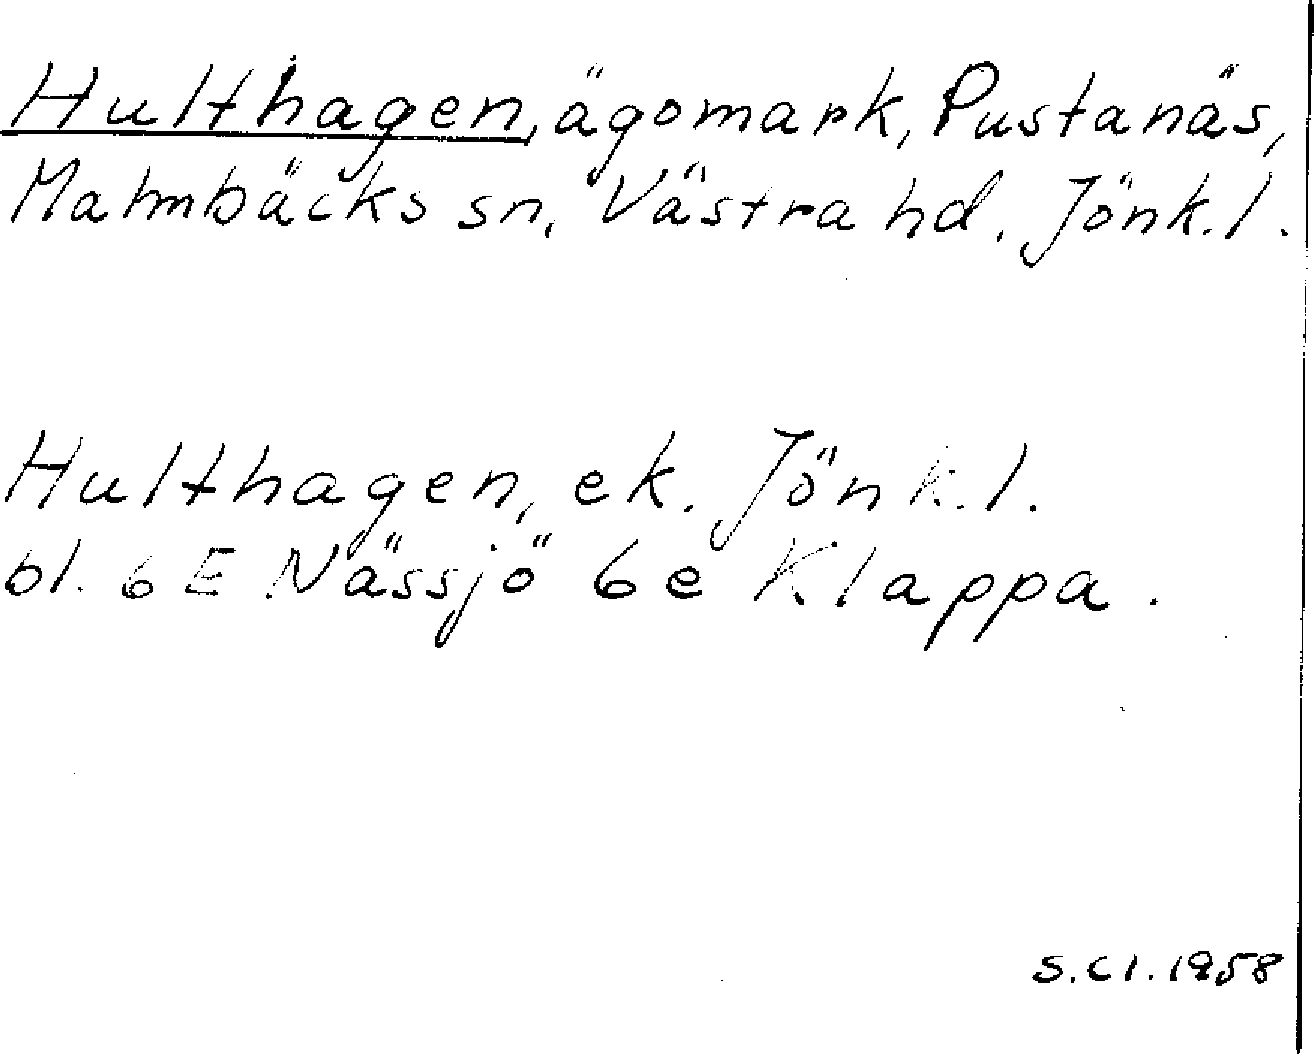 Hulthagen, ägomark, Pustanäs,
Malmbäcks sn, Västra hd. Jönk.l.
Hulthagen, ek. Jönk.l.
bl. 6E Nässjö 6e Klappa.
S.Cl.1958